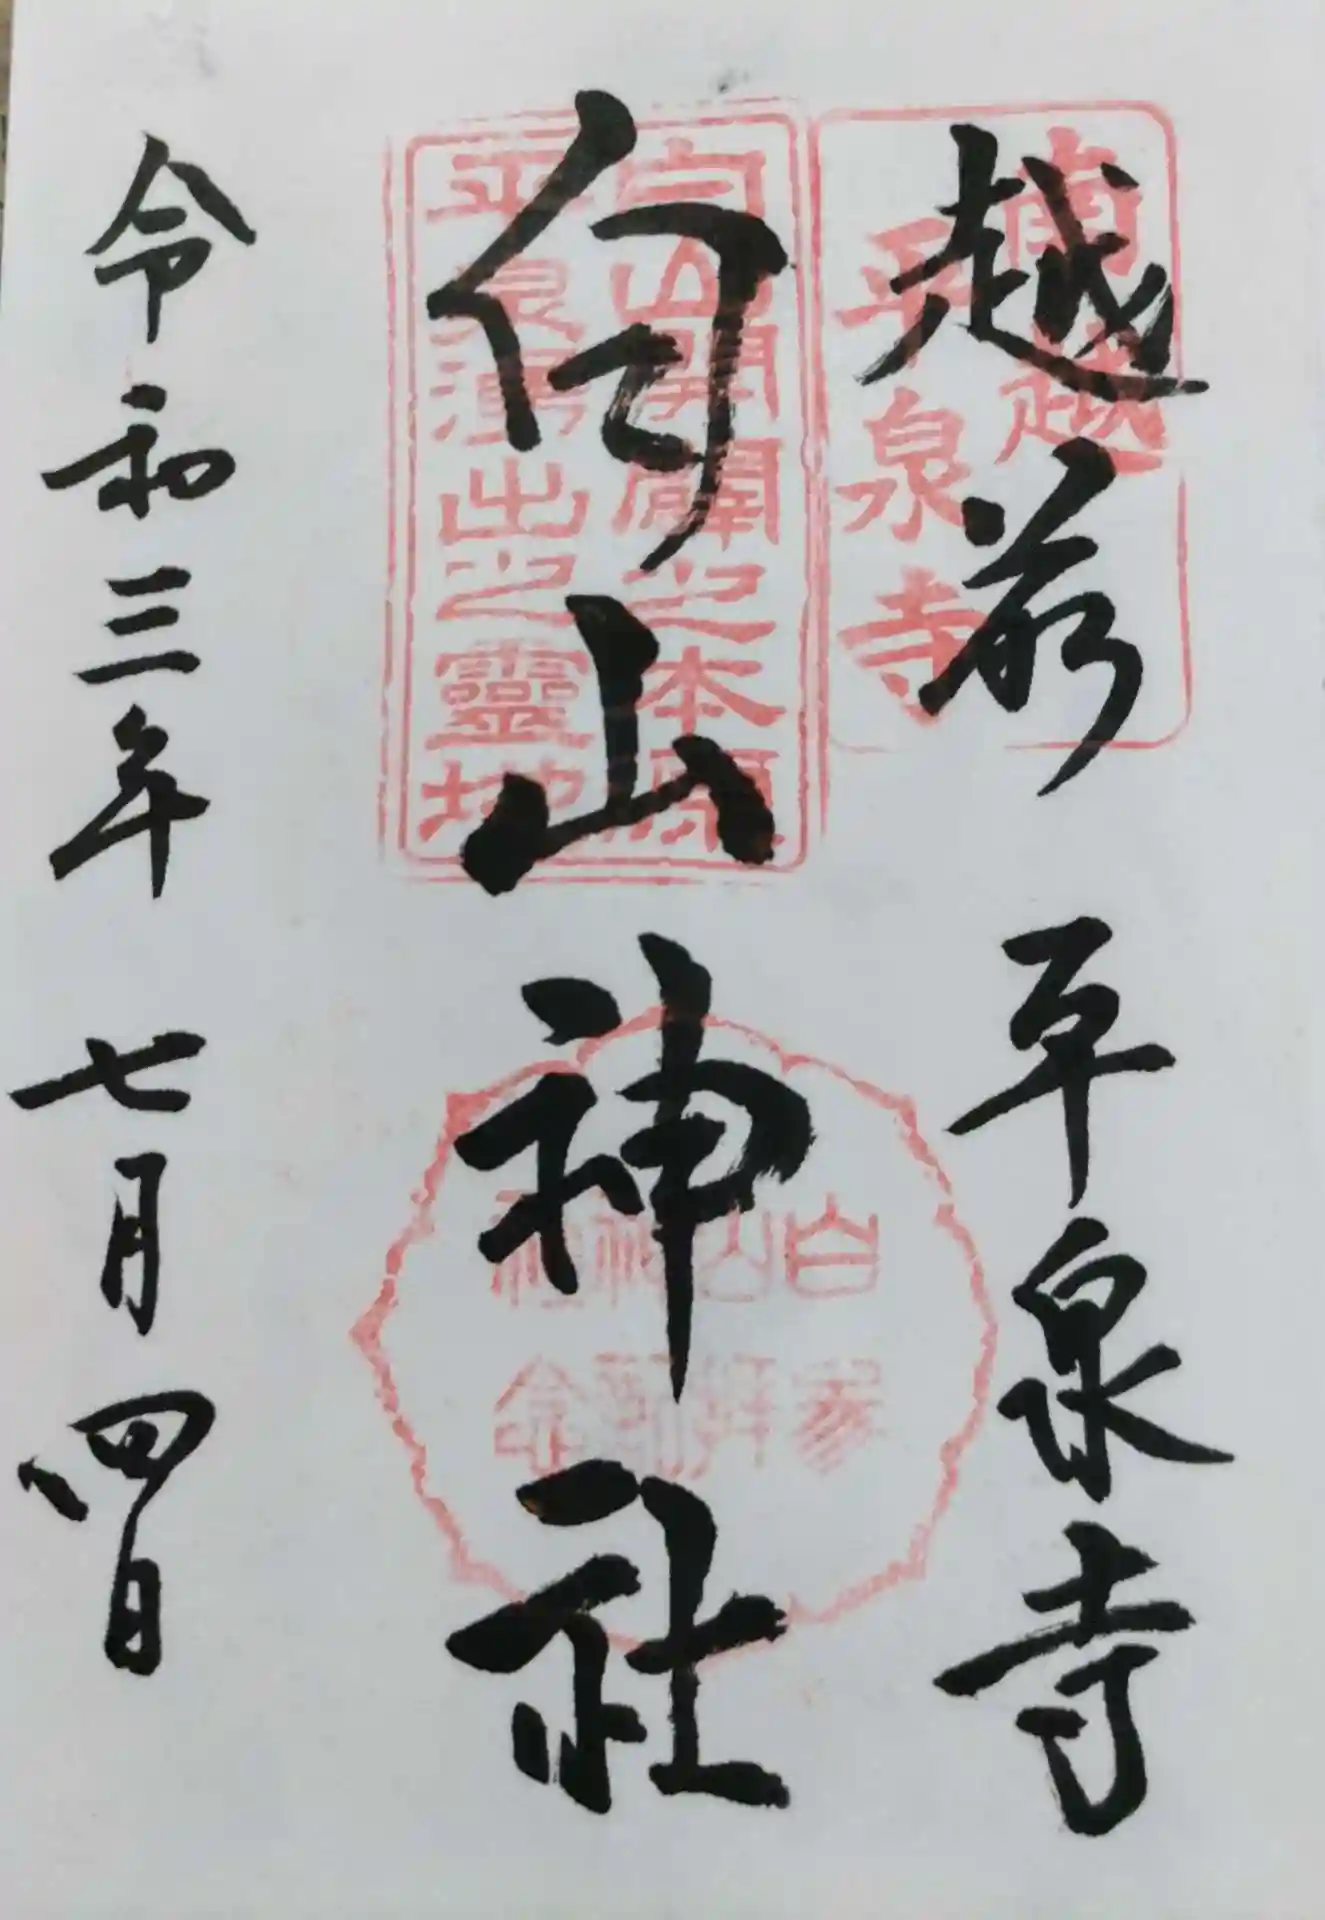 越前 平泉寺
白山神社
令和三年 七月四日
南越
平泉寺
白山開闢之本
平泉涌出之靈地
白山神社
参拝